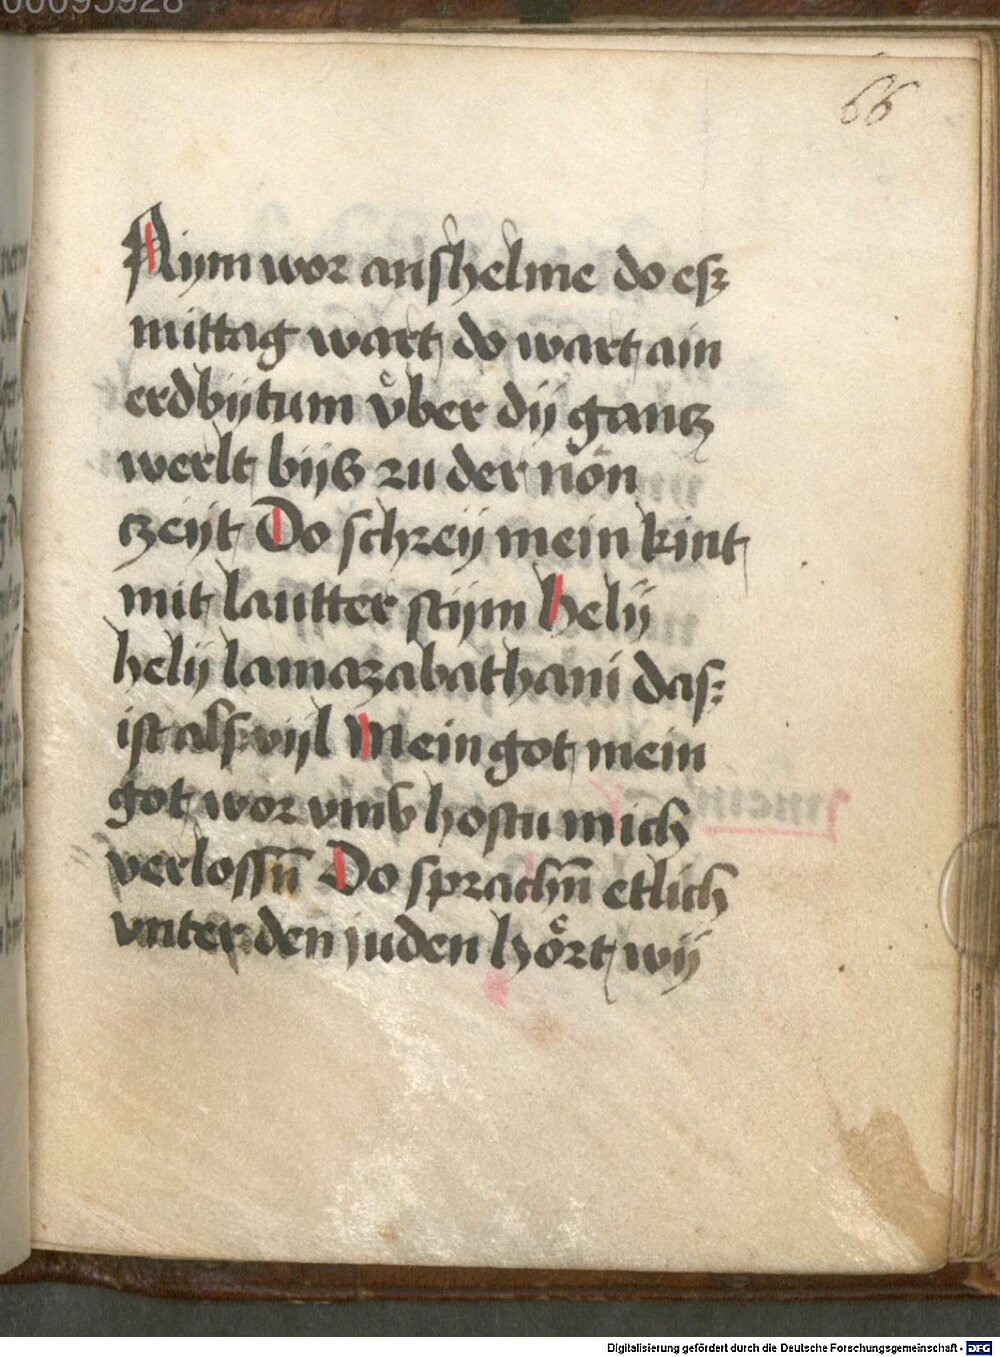 00095928
66
Nym wor anshelme do es
mittag wart do wart ain
erdbytum vͤber dy gantz
werlt byß zu der non
zeyt Do schrey mein kint
mit lautter stym hely
hely lamazabathani das
ist als vyl Mein got mein
got wor vmb hostu mich
verlossn̄ Do sprachn̄ etlich
vnter den juden hoͤrt wy
Digitalisierung gefördert durch die Deutsche Forschungsgemeinschaft - DFG